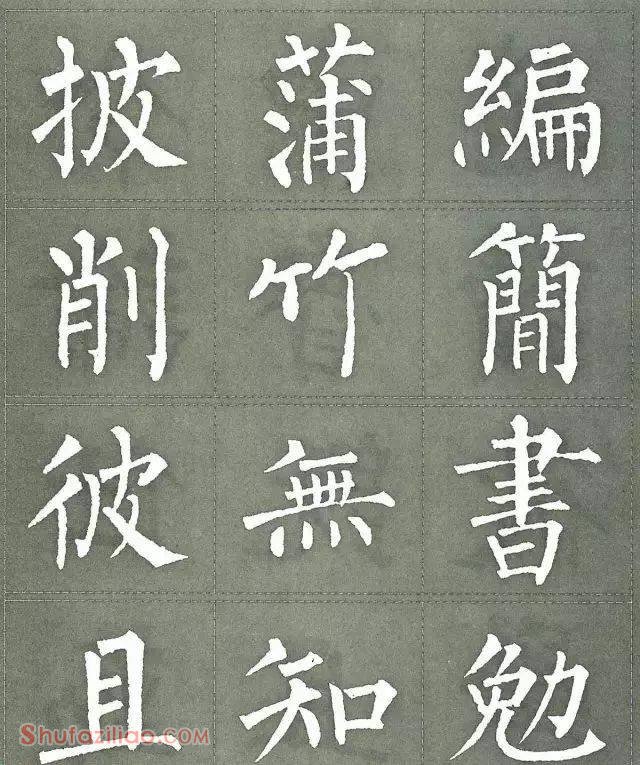 披蒲編
削竹簡
彼無書
且知勉
Shufaziliao.com